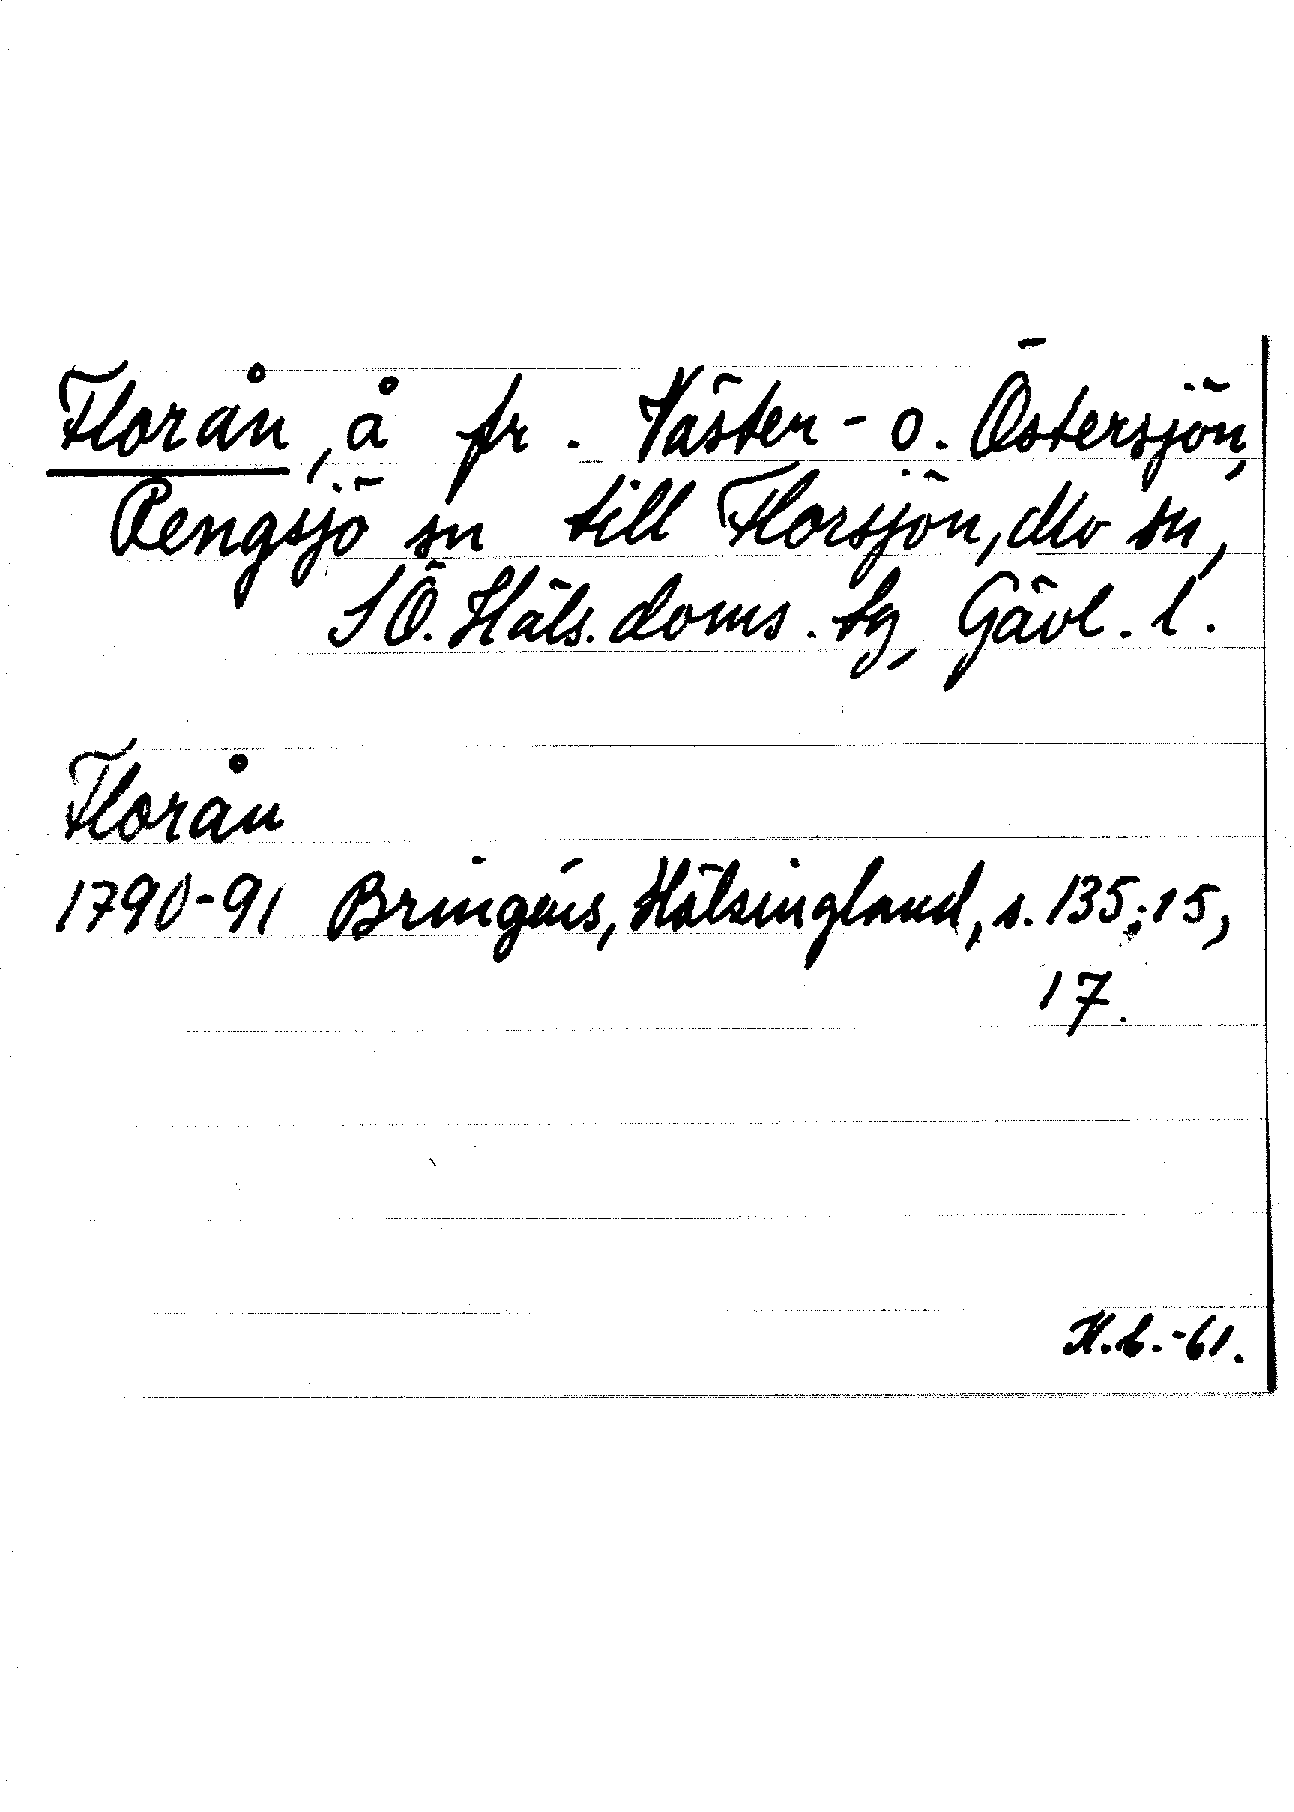 Florån, å fr. Väster- o. Östersjön,
Rengsjö sn till Florsjön, Mo sn,
SÖ. Häls. doms. sg, Gävl. l.
Florån
1790-91 Bringéus, Hälsingland, s. 135:15,
17.
H.L.-61.